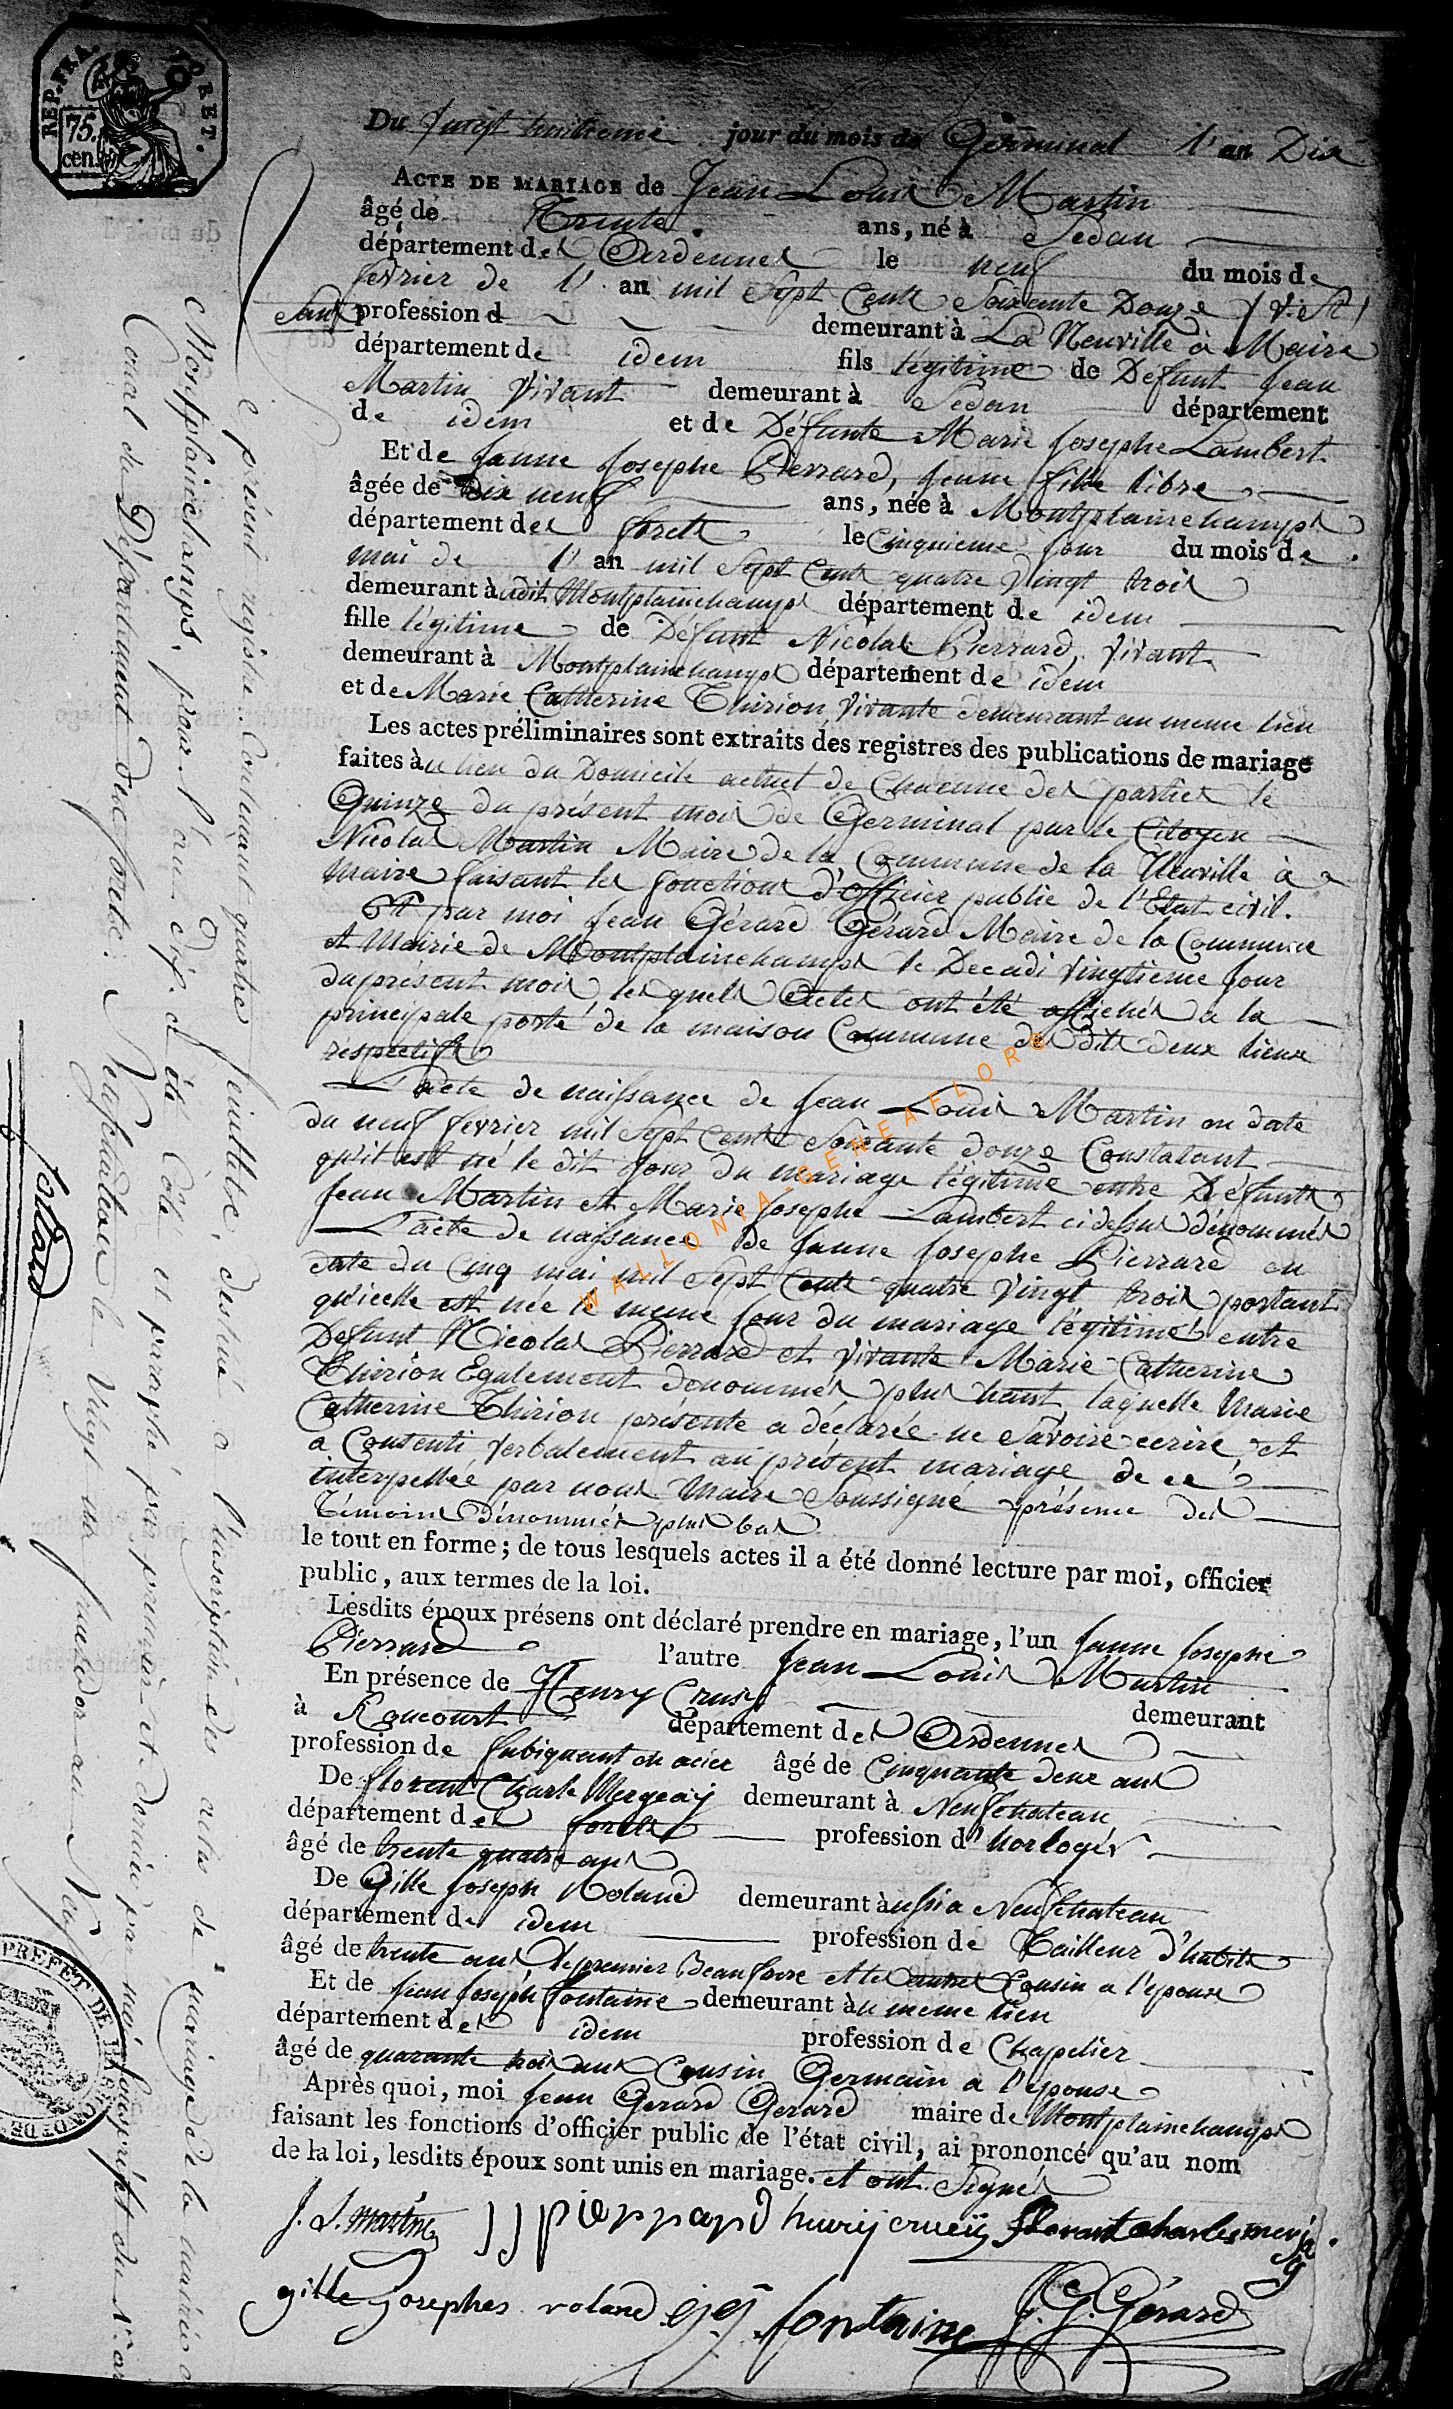 REP. FRA.
DECRET.
75.
cen.
Du Vingt huitieme jour du mois de Germinal l'an Dix
ACTE DE MARIAGE de Jean Louis Martin
âgé de Trente ans, né à Sedan
département des Ardennes le neuf du mois de
fevrier de l'an mil Sept Cents Soixante Douze (v. St)
Sans profession d demeurant à La Neuville à Maire
département de idem fils légitime de Defunt Jean
Martin Vivant demeurant à Sedan département
de idem et de Défunte Marie Josephe Lambert
Et de Janne Josephe Pierrard, jeune fille libre
âgée de Dix neuf ans, née à Montplainchamps
département des forets le Cinquieme jour du mois de
mai de l'an mil Sept Cents quatre Vingt trois
demeurant à udit Montplainchamps département de idem
fille légitime de Défunt Nicolas Pierrard, vivant
demeurant à Montplainchamps département de idem
et de Marie Catherine Thirion, Vivante demeurant au meme lieu
Les actes préliminaires sont extraits des registres des publications de mariage
faites àu lieu du Domicile actuel de Chacune des parties le
Quinze du présent mois de Germinal par le Citoyen
Nicolas Martin Maire de la Commune de la Neuville à
maire faisant les fonctions d'officier public de l'Etat civil.
Et par moi Jean Gérard Gérard Maire de la Commune
et Mairie de Montplainchamps le Decadi Vingtieme jour
du présent mois, les quels Actes ont été affichés a la
principale porte de la maison Commune des dits deux lieux
respectifs
L'acte de naissance de Jean Louis Martin en date
du neuf fevrier mil Sept Cents Soixante douze Constatant
qu'il est né le dit jour du mariage légitime entre Défunts
Jean Martin et Marie Josephe Lambert ci dessus dénommés
L'acte de naissance de Janne Josephe Pierrard en
date du Cinq mai mil Sept Cents quatre Vingt trois portant
qu'icelle est née le meme jour du mariage légitime entre
Defunt Nicolas Pierrard et Vivante Marie Catherine
Thirion Egalement denommés plus haut, laquelle Marie
Catherine Thirion présente a déclarée ne Savoire ecrire et
a Consenti verbalement au présent mariage de ce
interpellée par nous Maire Soussigné présence des
Témoins Dénommés plus bas
le tout en forme; de tous lesquels actes il a été donné lecture par moi, officier
public, aux termes de la loi.
Lesdits époux présens ont déclaré prendre en mariage, l'un Janne Josephe
Pierrard l'autre Jean Louis Martin
En présence de Henry Crusy demeurant
à Raucourt département des Ardennes
profession de fabriquant en acier âgé de Cinquante deux ans
De florent Charle Mergeay demeurant à Neufchateau
département des forets profession d'horloger
âgé de trente quatre ans
De Gille Joseph Roland demeurant àussi a Neufchateau
département de idem profession de Tailleur d'habits
âgé de trente ans, le premier Beaufrere et le autres Cousin a l'epouse
Et de Jean Joseph fontaine demeurant àu meme lieu
département des idem profession de Chapelier
âgé de quarante trois ans Cousin Germain a l'epouse
Après quoi, moi Jean Gerard Gerard maire de Montplainchamps
faisant les fonctions d'officier public de l'état civil, ai prononcé qu'au nom
de la loi, lesdits époux sont unis en mariage. et ont Signés
J. L. martin JJ pierrard henrij crucÿ florent charles mergay
gille Josephes roland jj fontaine J. G. Gérard
Le présent registre Contenant quatre feuillets, destiné à l'inscription des actes de mariage de la mairie de
Montplainchamps, pour l'an dix, a été Coté et paraphé par premier et dernier par moi Souspréfet du Nr. ar
Conal du Département des forets. Neufchateau le Vingt un fructidor an Neuf
Collard
PREFET DE L'ARROND
WALLONIA-GENEAFLORE